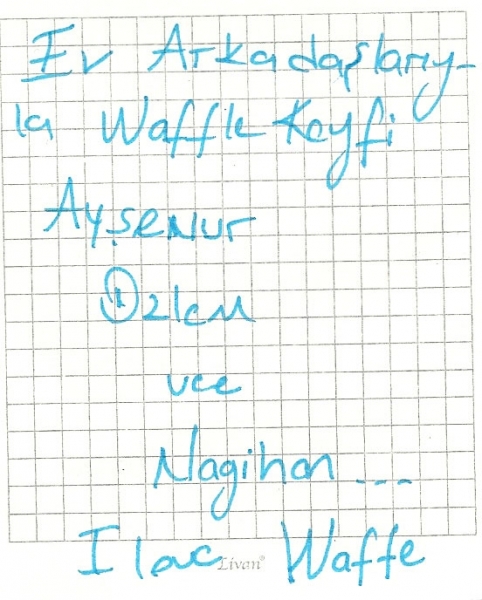 Ev Arkadaşlarıy-
la Waffle Keyfi
Ayşenur
Özlem
vee
Nagihan ...
Ilac Waffe
Livan®